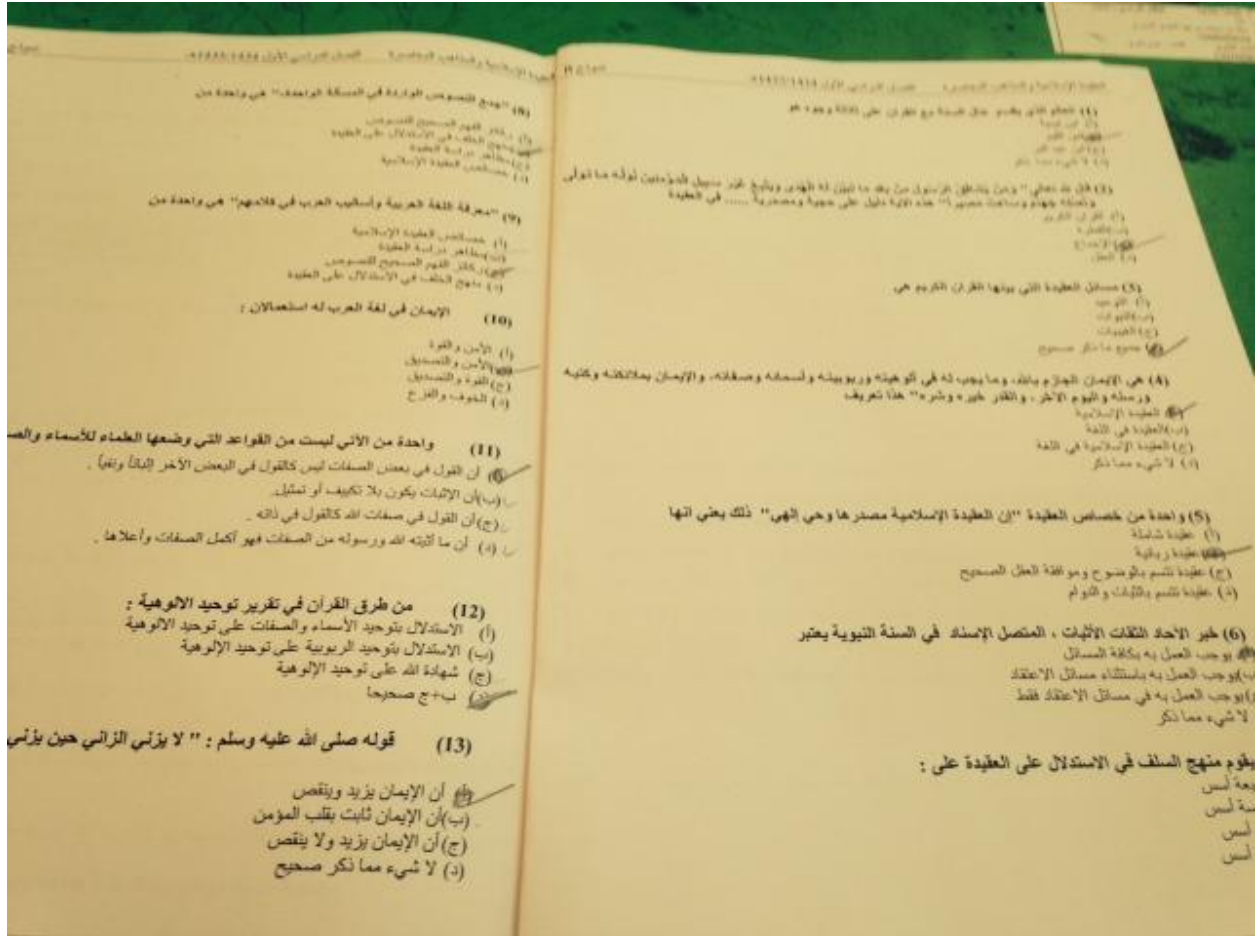 العقيدة الإسلامية والمذاهب المعاصرة الفصل الدراسي الأول
(1) العالم الذي يقسم حال السنة مع القرآن على ثلاثة وجوه هو
(أ) ابن تيمية
ابن القيم
(ج) ابن عبد البر
(د) لا شيء مما ذكر
(2) قال الله تعالى " ومن يشاقق الرسول من بعد ما تبين له الهدى ويتبع غير سبيل المؤمنين نوله ما تولى
ونصله جهنم وساءت مصيرا" هذه الآية دليل على حجية ومصدرية ...... في العقيدة
(أ) القرآن الكريم
(ب)
الإجماع
(د) العقل
(3) مسائل العقيدة التي بينها القرآن الكريم هي
(أ) التوحيد
(ب) النبوات
(ج) الغيبيات
جميع ما ذكر صحيح
(4) هي الإيمان الجازم بالله، وما يجب له في ألوهيته وربوبيته وأسمائه وصفاته، والإيمان بملائكته وكتبه
ورسله واليوم الآخر ، والقدر خيره وشره" هذا تعريف
العقيدة الإسلامية
(ب) العقيدة في اللغة
(ج) العقيدة الإسلامية في اللغة
(د) لا شيء مما ذكر
(5) واحدة من خصائص العقيدة "إن العقيدة الإسلامية مصدرها وحي إلهي" ذلك يعني انها
(أ) عقيدة شاملة
عقيدة ربانية
(ج) عقيدة تتسم بالوضوح وموافقة العقل الصحيح
(د) عقيدة تتسم بالثبات والدوام
(6) خبر الآحاد الثقات الأثبات ، المتصل الإسناد في السنة النبوية يعتبر
يوجب العمل به بكافة المسائل
ب) يوجب العمل به باستثناء مسائل الاعتقاد
يوجب العمل به في مسائل الاعتقاد فقط
لا شيء مما ذكر
يقوم منهج السلف في الاستدلال على العقيدة على :
أسس
أسس
أسس
أسس
العقيدة الإسلامية والمذاهب المعاصرة الفصل الدراسي الأول
(8) "جمع النصوص الواردة في المسألة الواحدة" هي واحدة من
(أ) ركائز الفهم الصحيح للنصوص
منهج الخلف في الاستدلال على العقيدة
(ج) مظاهر دراسة العقيدة
(د) خصائص العقيدة الإسلامية
(9) "معرفة اللغة العربية وأساليب العرب في كلامهم" هي واحدة من
(أ) خصائص العقيدة الإسلامية
(ب) مظاهر دراسة العقيدة
ركائز الفهم الصحيح للنصوص
(د) منهج الخلف في الاستدلال على العقيدة
(10) الإيمان في لغة العرب له استعمالان :
(أ) الأمن والقوة
الأمن والتصديق
(ج) القوة والتصديق
(د) الخوف والفزع
(11) واحدة من الآتي ليست من القواعد التي وضعها العلماء للأسماء
أن القول في بعض الصفات ليس كالقول في البعض الآخر إثباتاً ونفياً .
(ب) أن الإثبات يكون بلا تكييف أو تمثيل.
(ج) أن القول في صفات الله كالقول في ذاته .
(د) أن ما أثبته الله ورسوله من الصفات فهو أكمل الصفات وأعلاها .
(12) من طرق القرآن في تقرير توحيد الالوهية :
(أ) الاستدلال بتوحيد الأسماء والصفات على توحيد الالوهية
(ب) الاستدلال بتوحيد الربوبية على توحيد الإلوهية
(ج) شهادة الله على توحيد الإلوهية
(د) ب+ج صحيحا
(13) قوله صلى الله عليه وسلم : " لا يزني الزاني حين يزني
أن الإيمان يزيد وينقص
(ب) أن الإيمان ثابت بقلب المؤمن
(ج) أن الإيمان يزيد ولا ينقص
(د) لا شيء مما ذكر صحيح